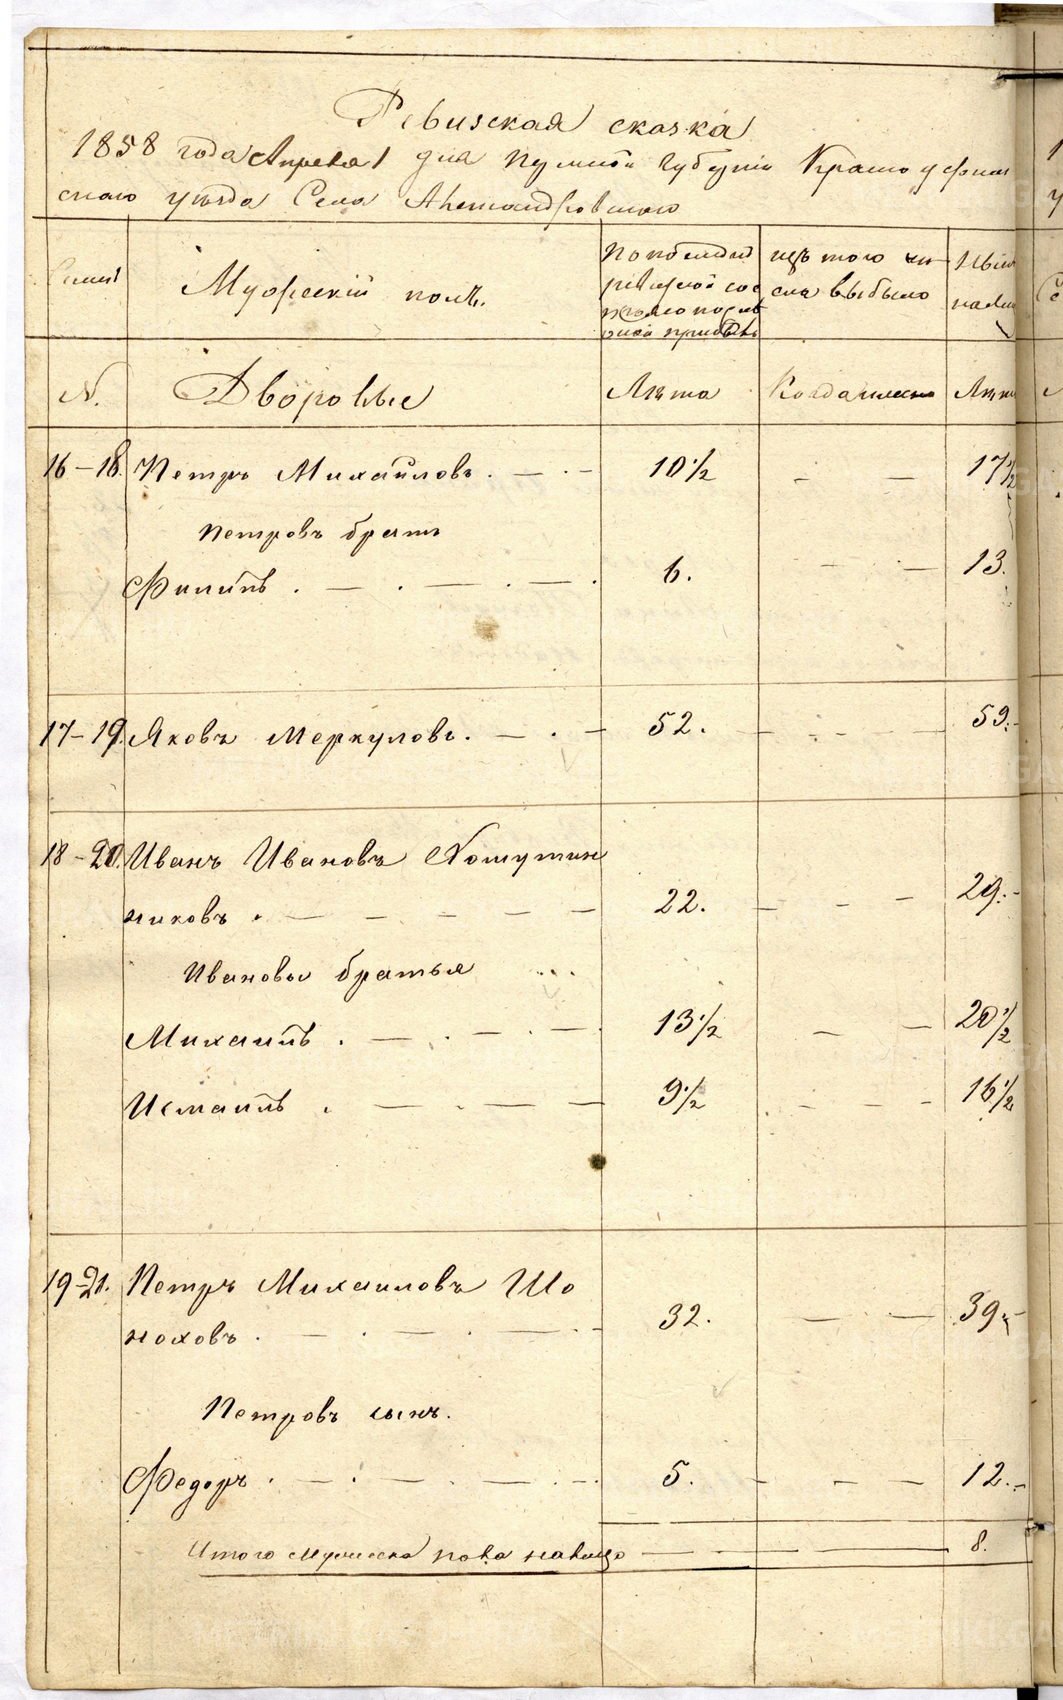 Ревизская сказка
1858 года Апреля 1 дня Пермской Губернии Красноуфим
скаго уезда Села Александровскаго
Семьи
Мужескій полъ.
По последней
ревизской сос
тояло и после
оной прибыло
изъ того чи
сла выбыло
Ныне
на лицо
№.
Дворовые
Лѣта
Когда именно
Лѣта
16 – 18. Петръ Михайловъ. 10½ 17½
Петровъ братъ
Филипъ 6. 13.
17 – 19. Яковъ Меркуловъ. 52. 59.
18 – 20. Иванъ Ивановъ
никовъ 22. 29.
Ивановы братья
Михаилъ 13½ 20½
Исмаилъ 9½ 16½
19 – 21. Петръ Михаиловъ Шо
ноховъ 32. 39.
Петровъ сынъ.
Федоръ 5. 12.
Итого мужеска пола на лицо 8.